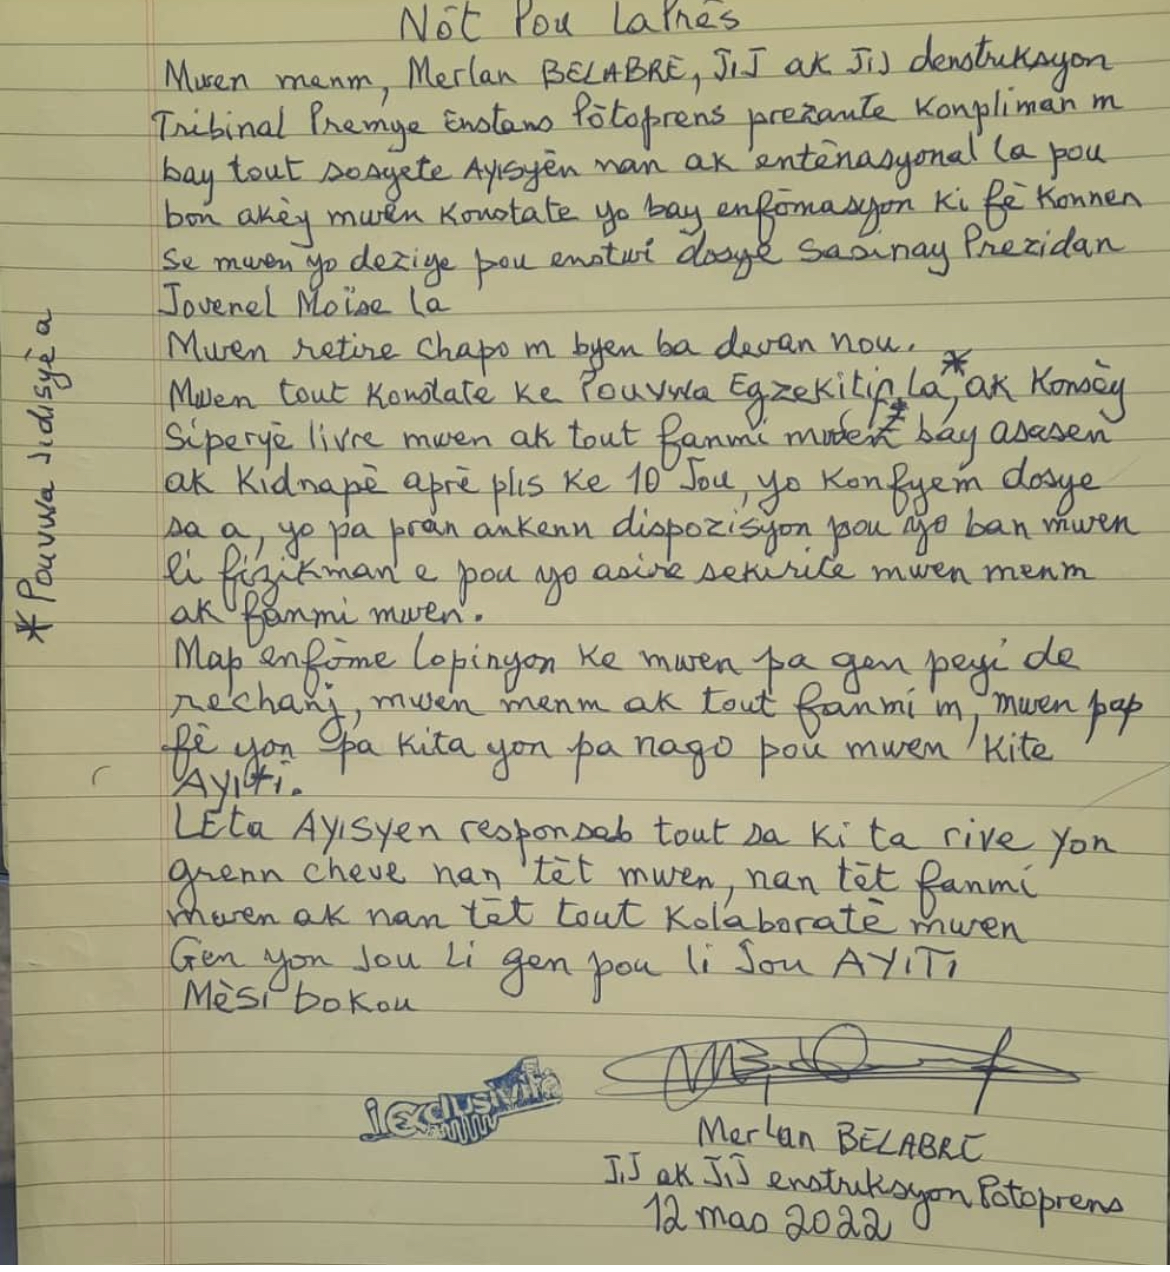 Nòt Pou Laprès
Mwen menm, Merlan BELABRE, JiJ ak JiJ denstruksyon
Tribinal Premye Enstans Pòtoprens prezante Konpliman m
bay tout sosyete Ayisyèn nan ak entènasyonal la pou
bon akèy mwen Konstate yo bay enfòmasyon ki fè Konnen
Se mwen yo deziye pou enstwi dosyè sasinay Prezidan
Jovenel Moïse la
Mwen retire chapo m byen ba devan nou.
Mwen tout Konstate ke Pouvwa Egzekitif la,* ak Konsèy
Siperyè livre mwen ak tout fanmi mwen bay asasen
ak Kidnapè aprè plis ke 10 Jou, yo Konfyem dosye
sa a, yo pa pran ankenn dispozisyon pou yo ban mwen
li fizikman e pou yo asire sekirite mwen menm
ak fanmi mwen.
Map enfòme lopinyon ke mwen pa gen peyi de
rechanj, mwen menm ak tout fanmi m, mwen pap
fè yon pa kita yon pa nago pou mwen Kite
AYITI.
LEta AYISYEN responsab tout sa ki ta rive yon
grenn cheve nan tèt mwen, nan tèt fanmi
mwen ak nan tèt tout Kolaboratè mwen
Gen yon Jou Li gen pou li Jou AYITI
Mèsi bokou
* Pouvwa Jidisyè a
exclusivité
Merlan BELABRE
JiJ ak JiJ enstruksyon Potoprens
12 mas 2022